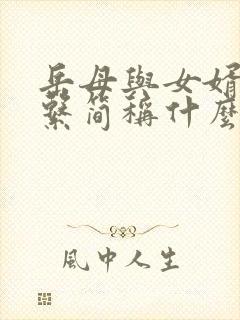 岳母與女婿
繫简稱什麼
風中人生